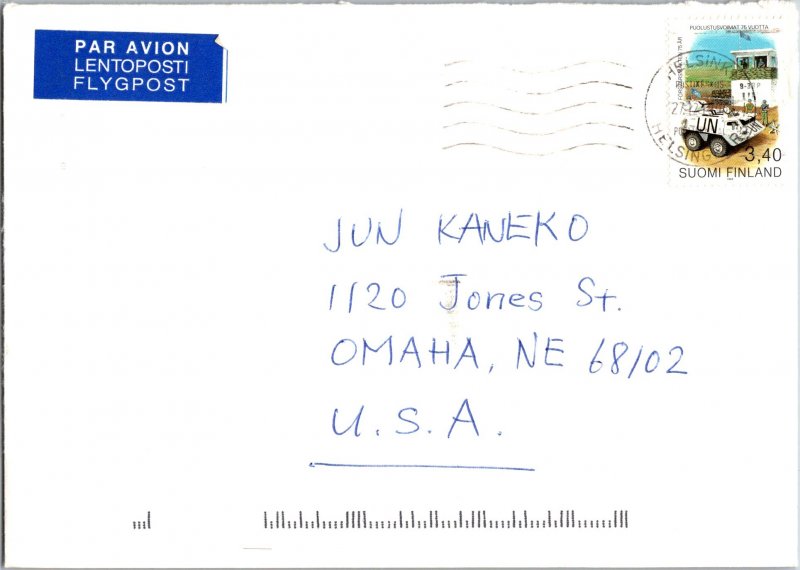 PAR AVION
LENTOPOSTI
FLYGPOST
PUOLUSTUSVOIMAT 75 VUOTTA
HELSINKI
UN
HELSINGFORS
3,40
SUOMI FINLAND
JUN KANEKO
1120 Jones St.
OMAHA, NE 68102
U.S.A.